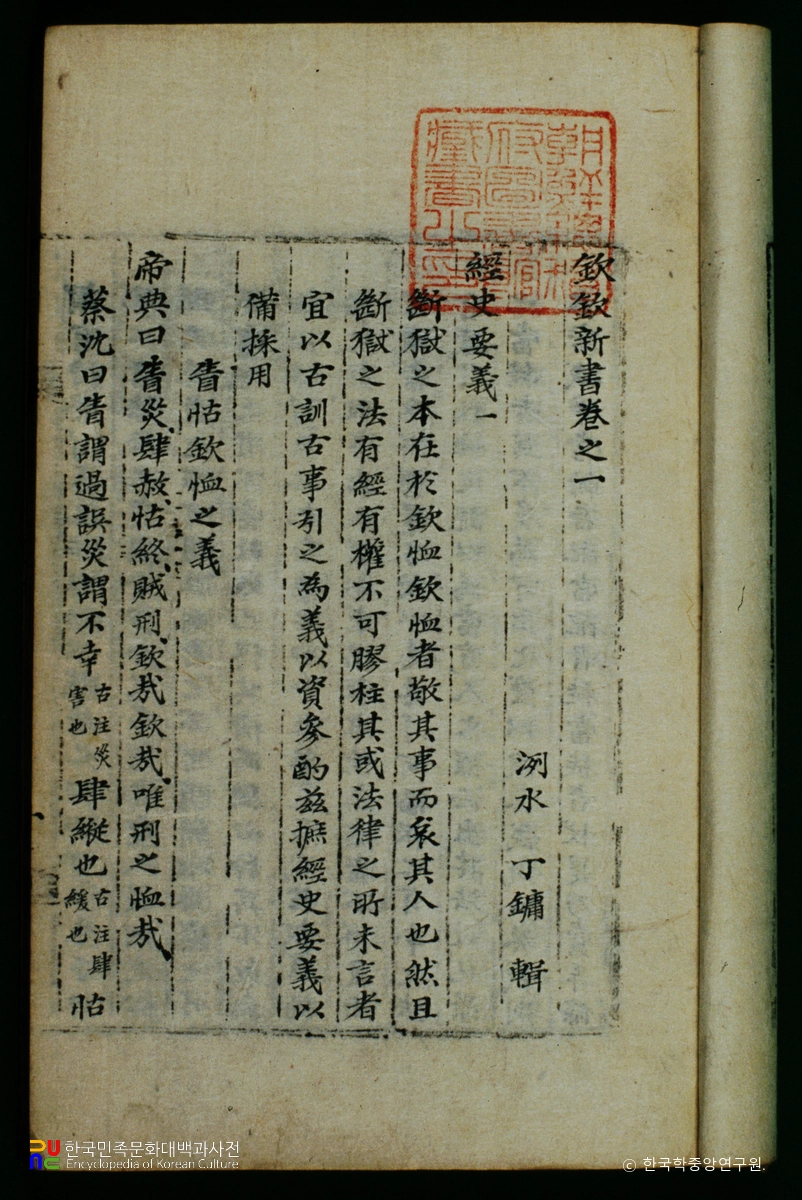 欽欽新書卷之一
洌水 丁鏞 輯
經史要義一
斷獄之本在於欽恤欽恤者敬其事而哀其人也然且
斷獄之法有經有權不可膠柱其或法律之所未言者
宜以古訓古事引之為義以資參酌玆摭經史要義以
備採用
眚怙欽恤之義
帝典曰眚災肆赦怙終賊刑欽哉欽哉唯刑之恤哉
蔡沈曰眚謂過誤災謂不幸古注災害也肆縱也古注肆緩也怙
한국민족문화대백과사전
Encyclopedia of Korean Culture
© 한국학중앙연구원